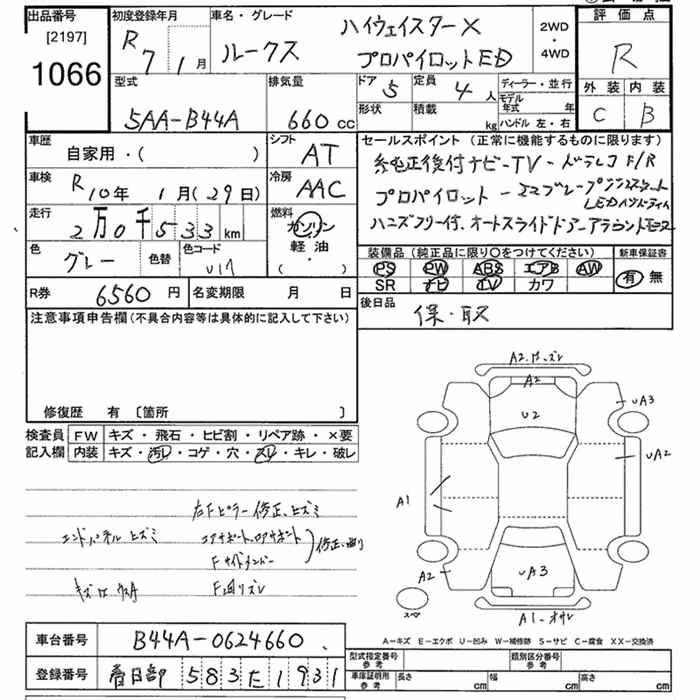 出品番号 初度登録年月 車名・グレード ハイウェイスターX 2WD・4WD 評価点
[2197] R 7 1月 ルークス プロパイロットED R
1066
型式 排気量 ドア 5 定員 4人 ディーラー・並行 外装 内装
5AA-B44A 660cc 形状 積載 kg モデル年式 年 ハンドル 左・右 C B
車歴 自家用・( ) シフト AT セールスポイント (正常に機能するものに限ります)
純正後付ナビ-TV-ドラレコF/R
車検 R10年 1月(29日) 冷房 AAC プロパイロット-
走行 2万0千533km 燃料 ガソリン 軽油・( )
ハンズフリー付、オートスライドドア-アラウンドモニター
色 グレー 色替 色コード 装備品 (純正品に限り〇をつけてください) 新車保証書
PS PW ABS エアB AW 有 無
SR ナビ TV カワ
R券 6560円 名変期限 月 日 後日品 保・取
注意事項申告欄(不具合内容等は具体的に記入して下さい)
修復歴 有 〔箇所 〕
検査員記入欄 FW キズ・飛石・ヒビ割・リペア跡・×要
内装 キズ・汚レ・コゲ・穴・スレ・キレ・破レ
右Fピラー修正、ヒズミ
エンドパネルヒズミ コアサポート、ロアサポート 修正、曲り
Fサイドメンバー
F廻リズレ
A2
U2
UA3
UA2
A1
A2
UA3
スペア
A1-オサレ
A-キズ E-エクボ U-凹み W-補修跡 S-サビ C-腐食 XX-交換済
車台番号 B44A-0624660 型式指定番号 参考 類別区分番号 参考
登録番号 春日部 583 た 1931 車庫証明用 参考 長さ cm 幅 cm 高さ cm